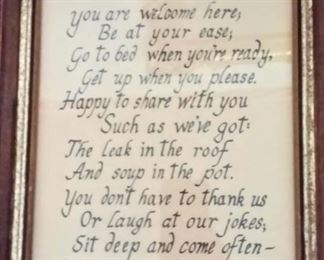 you are welcome here;
Be at your ease;
Go to bed when you're ready,
Get up when you please.
Happy to share with you
Such as we've got:
The leak in the roof
And soup in the pot.
You don't have to thank us
Or laugh at our jokes;
Sit deep and come often-